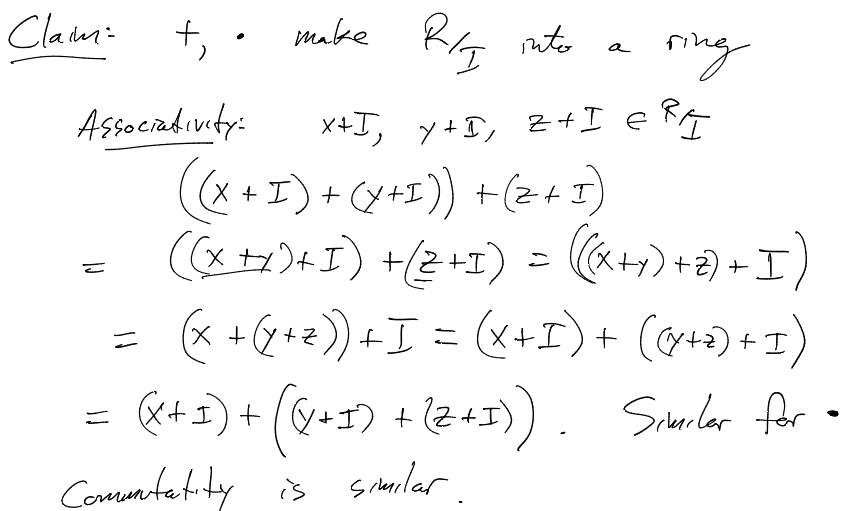 Claim: +, · make R/I into a ring
Associativity: x+I, y+I, z+I ∈ R/I
((x+I)+(y+I))+(z+I)
= ((x+y)+I)+(z+I) = (((x+y)+z)+I)
= (x+(y+z))+I = (x+I)+((y+z)+I)
= (x+I)+((y+I)+(z+I)). Similar for ·
Commutatity is similar.